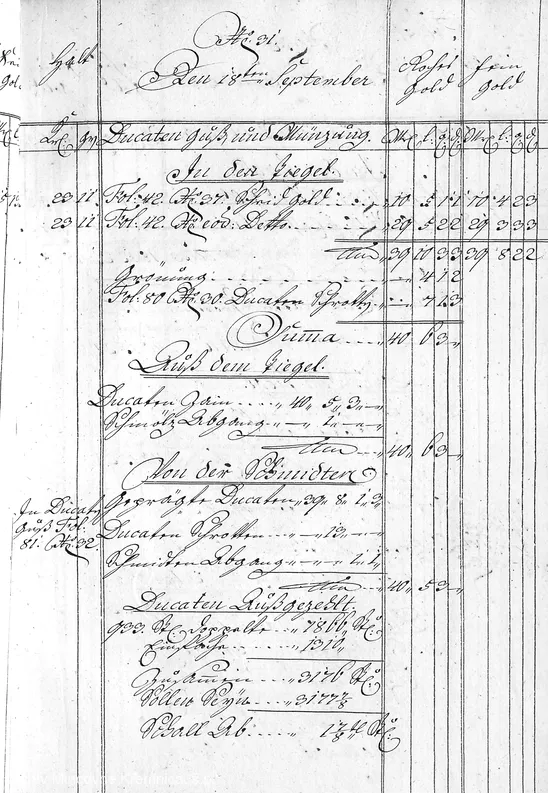 No. 31.
Halt Den 18ten September Rochs Gold fein Gold
Ducaten Guß und Müntzung.
In den Tiegel.
23 11 Fol: 42. No. 37. Scheid Gold 10 5 1 1 10 4 2 3
23 11 Fol: 42. No. eod: Detto 29 5 2 2 29 3 3 3
39 10 3 3 39 8 2 2
4 1 2
Fol: 80 No. 30. Ducaten Schrotten 7 1 3
Summa 40 6 3
Auß dem Tiegel.
Ducaten Zain 40 5 3
Schmöltz Abgang 1
40 6 3
Von der Schmidten
Geprägte Ducaten 39 8 1 3
In Ducaten
Guß Fol:
81. No. 32.
Ducaten Schrotten 13
Schmidten Abgang 1 1
40 5 3
Ducaten Außgezehlt.
933. St. Doppelte 1866 St:
Einfache 1310
Zusammen 3176 St:
Sollen Seyn 3177 7/8
Schall Ab 1 7/8 St: